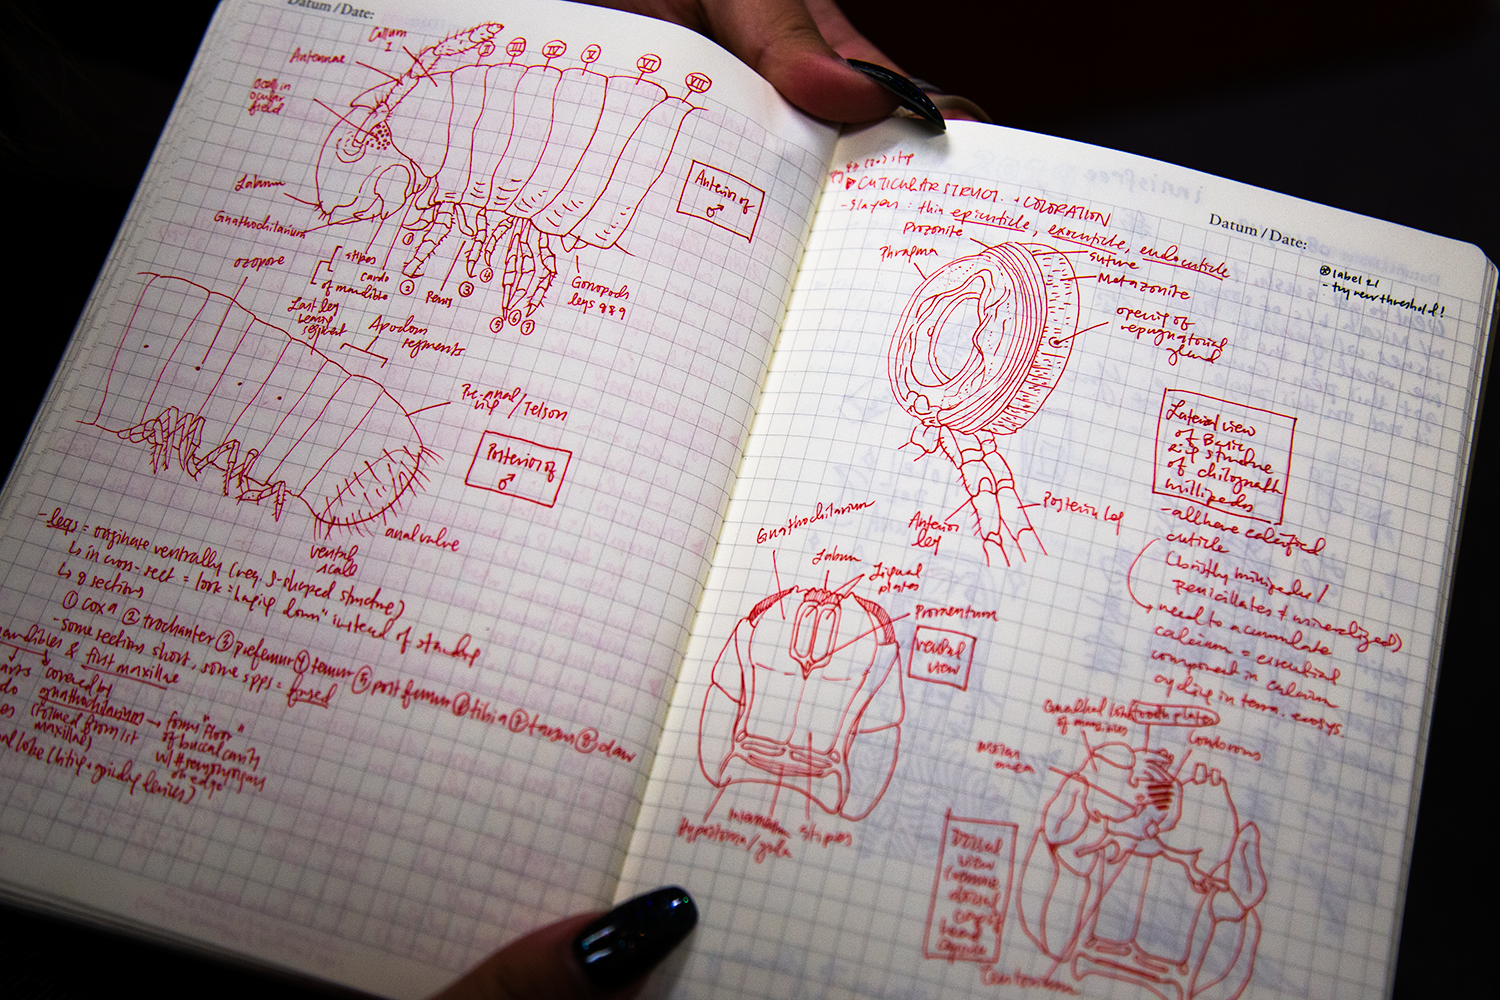 Datum/Date:
Collum
I
II
III
IV
V
VI
VII
Antennae
Ocelli in
ocular
field
Labrum
Gnathochilarium
stipes
cardo
of mandible
①
②
③
④
⑤
⑥
⑦
Penis
Gonopods
legs 8&9
Anterior of
♂
ozopore
Last leg
bearing
segment
Apodous
segments
Pre-anal / Telson
ring
Posterior of
♂
anal valve
ventral
scale
- legs = originate ventrally (req. S-shaped structure)
↳ in cross-sect = look "hanging down" instead of standing
↳ 8 sections
① coxa ② trochanter ③ prefemur ④ femur ⑤ postfemur ⑥ tibia ⑦ tarsus ⑧ claw
- some sections short, some spps = fused
mandibles & first maxillae
covered by
gnathochilarium → forms "floor"
(formed from 1st
maxillae)
of buccal cavity
w/ # sensory organs
on edge
lobe (biting + grinding devices)
Datum/Date:
⊗ label 21
- try new threshold!
CUTICULAR STRUCT. + COLORATION
- 3 layers: thin epicuticle, exocuticle, endocuticle
Prozonite
Phragma
suture
Metazonite
opening of
repugnatorial
gland
Lateral view
of Basic
structure
of chilognath
millipedes
- all have calcified
cuticle
(bristly millipedes /
penicillates ≠ mineralized)
need to accumulate
calcium = essential
component in calcium
cycling in terra. ecosys.
Anterior
leg
Posterior leg
Gnathochilarium
Labrum
Lingual
plates
Promentum
ventral
view
Mentum
stipes
Hypostoma / gula
Gnathal lobe
of mandibles
tooth plates
Condorous
molar
area
Dorsal
view
(remove
dorsal
head
capsule
Tentorium